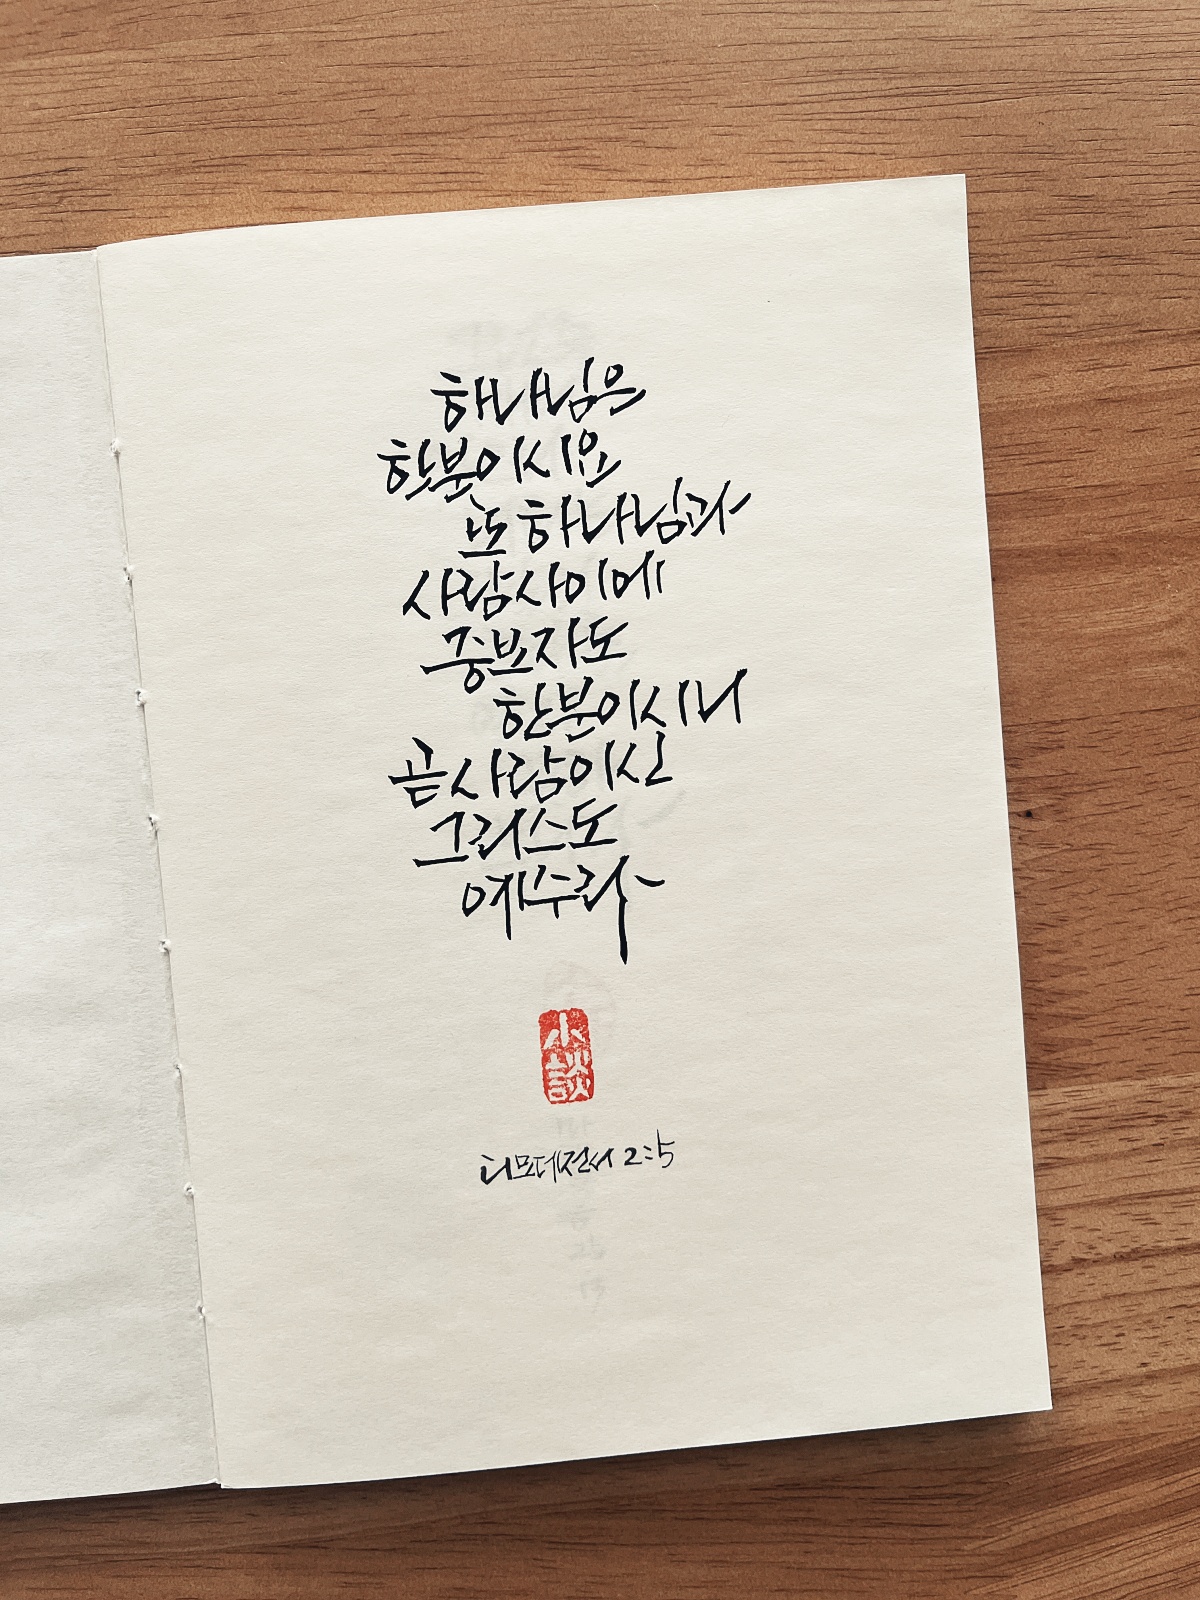 하나님은
한분이시요
또 하나님과
사람사이에
중보자도
한분이시니
곧 사람이신
그리스도
예수라
小談
디모데전서 2:5